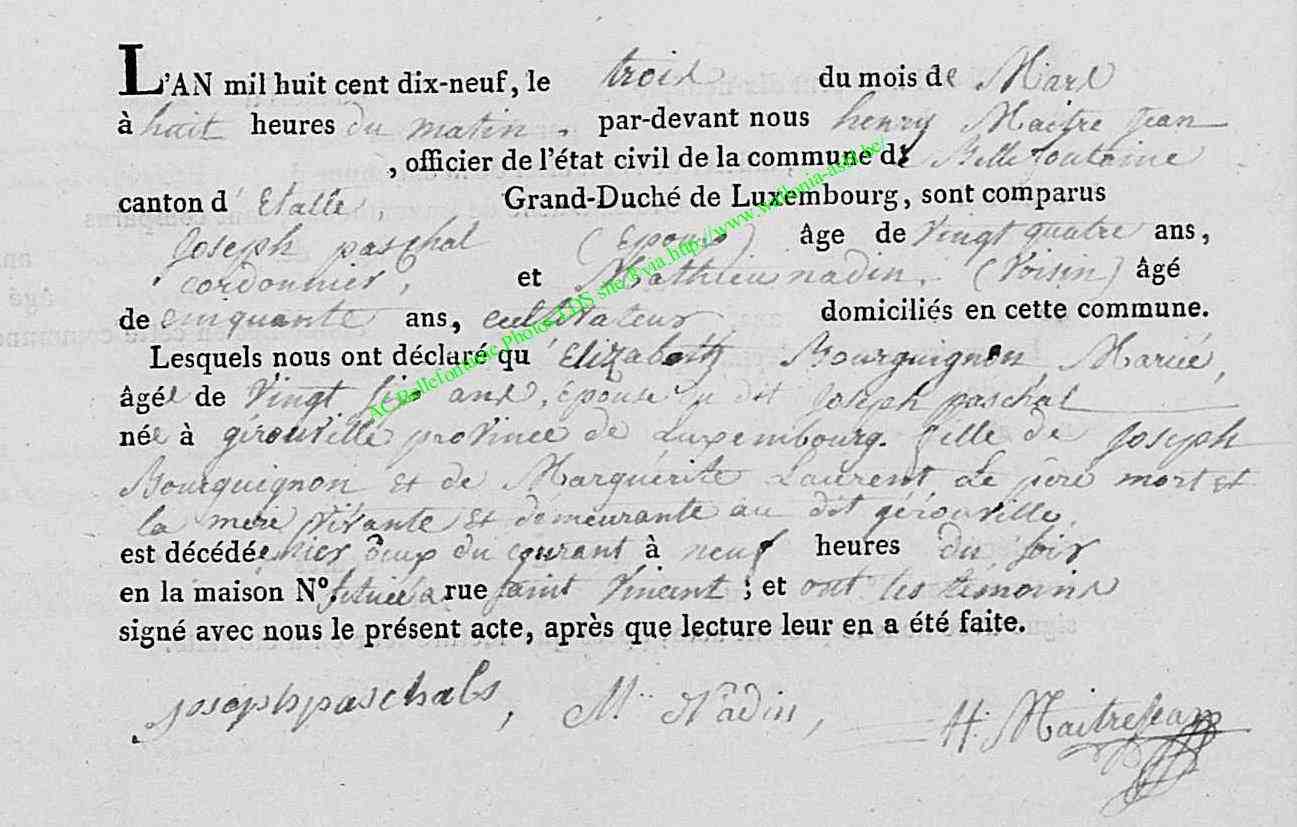 L'AN mil huit cent dix-neuf, le trois du mois de Mars
à huit heures du matin, par-devant nous henry Maitre Jean
, officier de l'état civil de la commune de Bellefontaine
canton d'Etalle, Grand-Duché de Luxembourg, sont comparus
Joseph paschal (Epoux) âge de Vingt quatre ans,
cordonnier, et Mathieu nadin, (Voisin) âgé
de cinquante ans, cultivateur domiciliés en cette commune.
Lesquels nous ont déclaré qu'Elizabeth Bourguignon, Mariée,
âgée de Vingt ans, épouse du dit Joseph paschal
née à gérouville province de Luxembourg. fille de Joseph
Bourguignon et de Marguérite Laurent Le père mort et
la mère vivante et demeurante au dit gérouville,
est décédée hier deux du courant à neuf heures du soir
en la maison N° située a rue saint Vincent ; et ont les témoins
signé avec nous le présent acte, après que lecture leur en a été faite.
joseph paschals, M. Nâdin, H: MaitreJean
AC Bellefontaine Photos LDS site Evia http://www.wallonia-asbl.be/